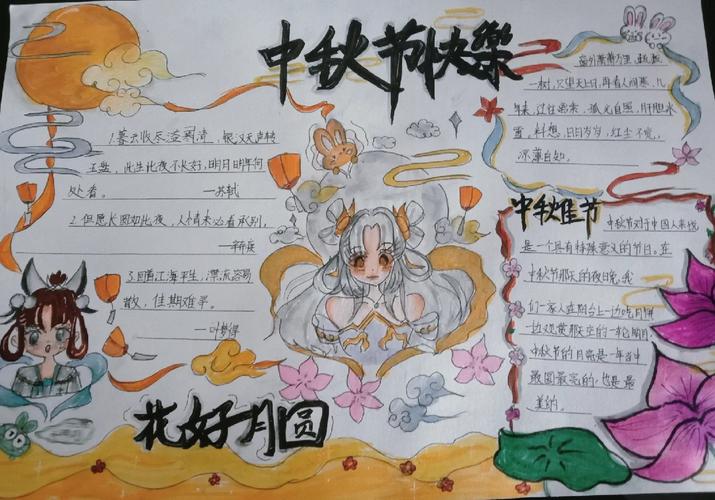 中秋节快樂
1.暮云收尽溢清寒，银汉无声转
玉盘，此生此夜不长好，明月明年何
处看。 —苏轼
2.但愿长圆如此夜，人情未必看承别。
—辛弃疾
3.回首江海平生，漂流容易
散，佳期难寻。
—叶梦得
一树，只望天上月，年看人间寒，几
年来，过往
孤光自照，肝胆冰
雪，料想，日日岁岁，红尘不完，
凉薄自知。
中秋佳节
中秋节对于中国人来说
是一个具有特殊意义的节日。在
中秋节那天的夜晚，我
们一家人在阳台上一边吃月饼
一边观赏那天空的一轮明月。
中秋节的月亮是一年当中
最圆最亮的，也是最
美的。
花好月圆